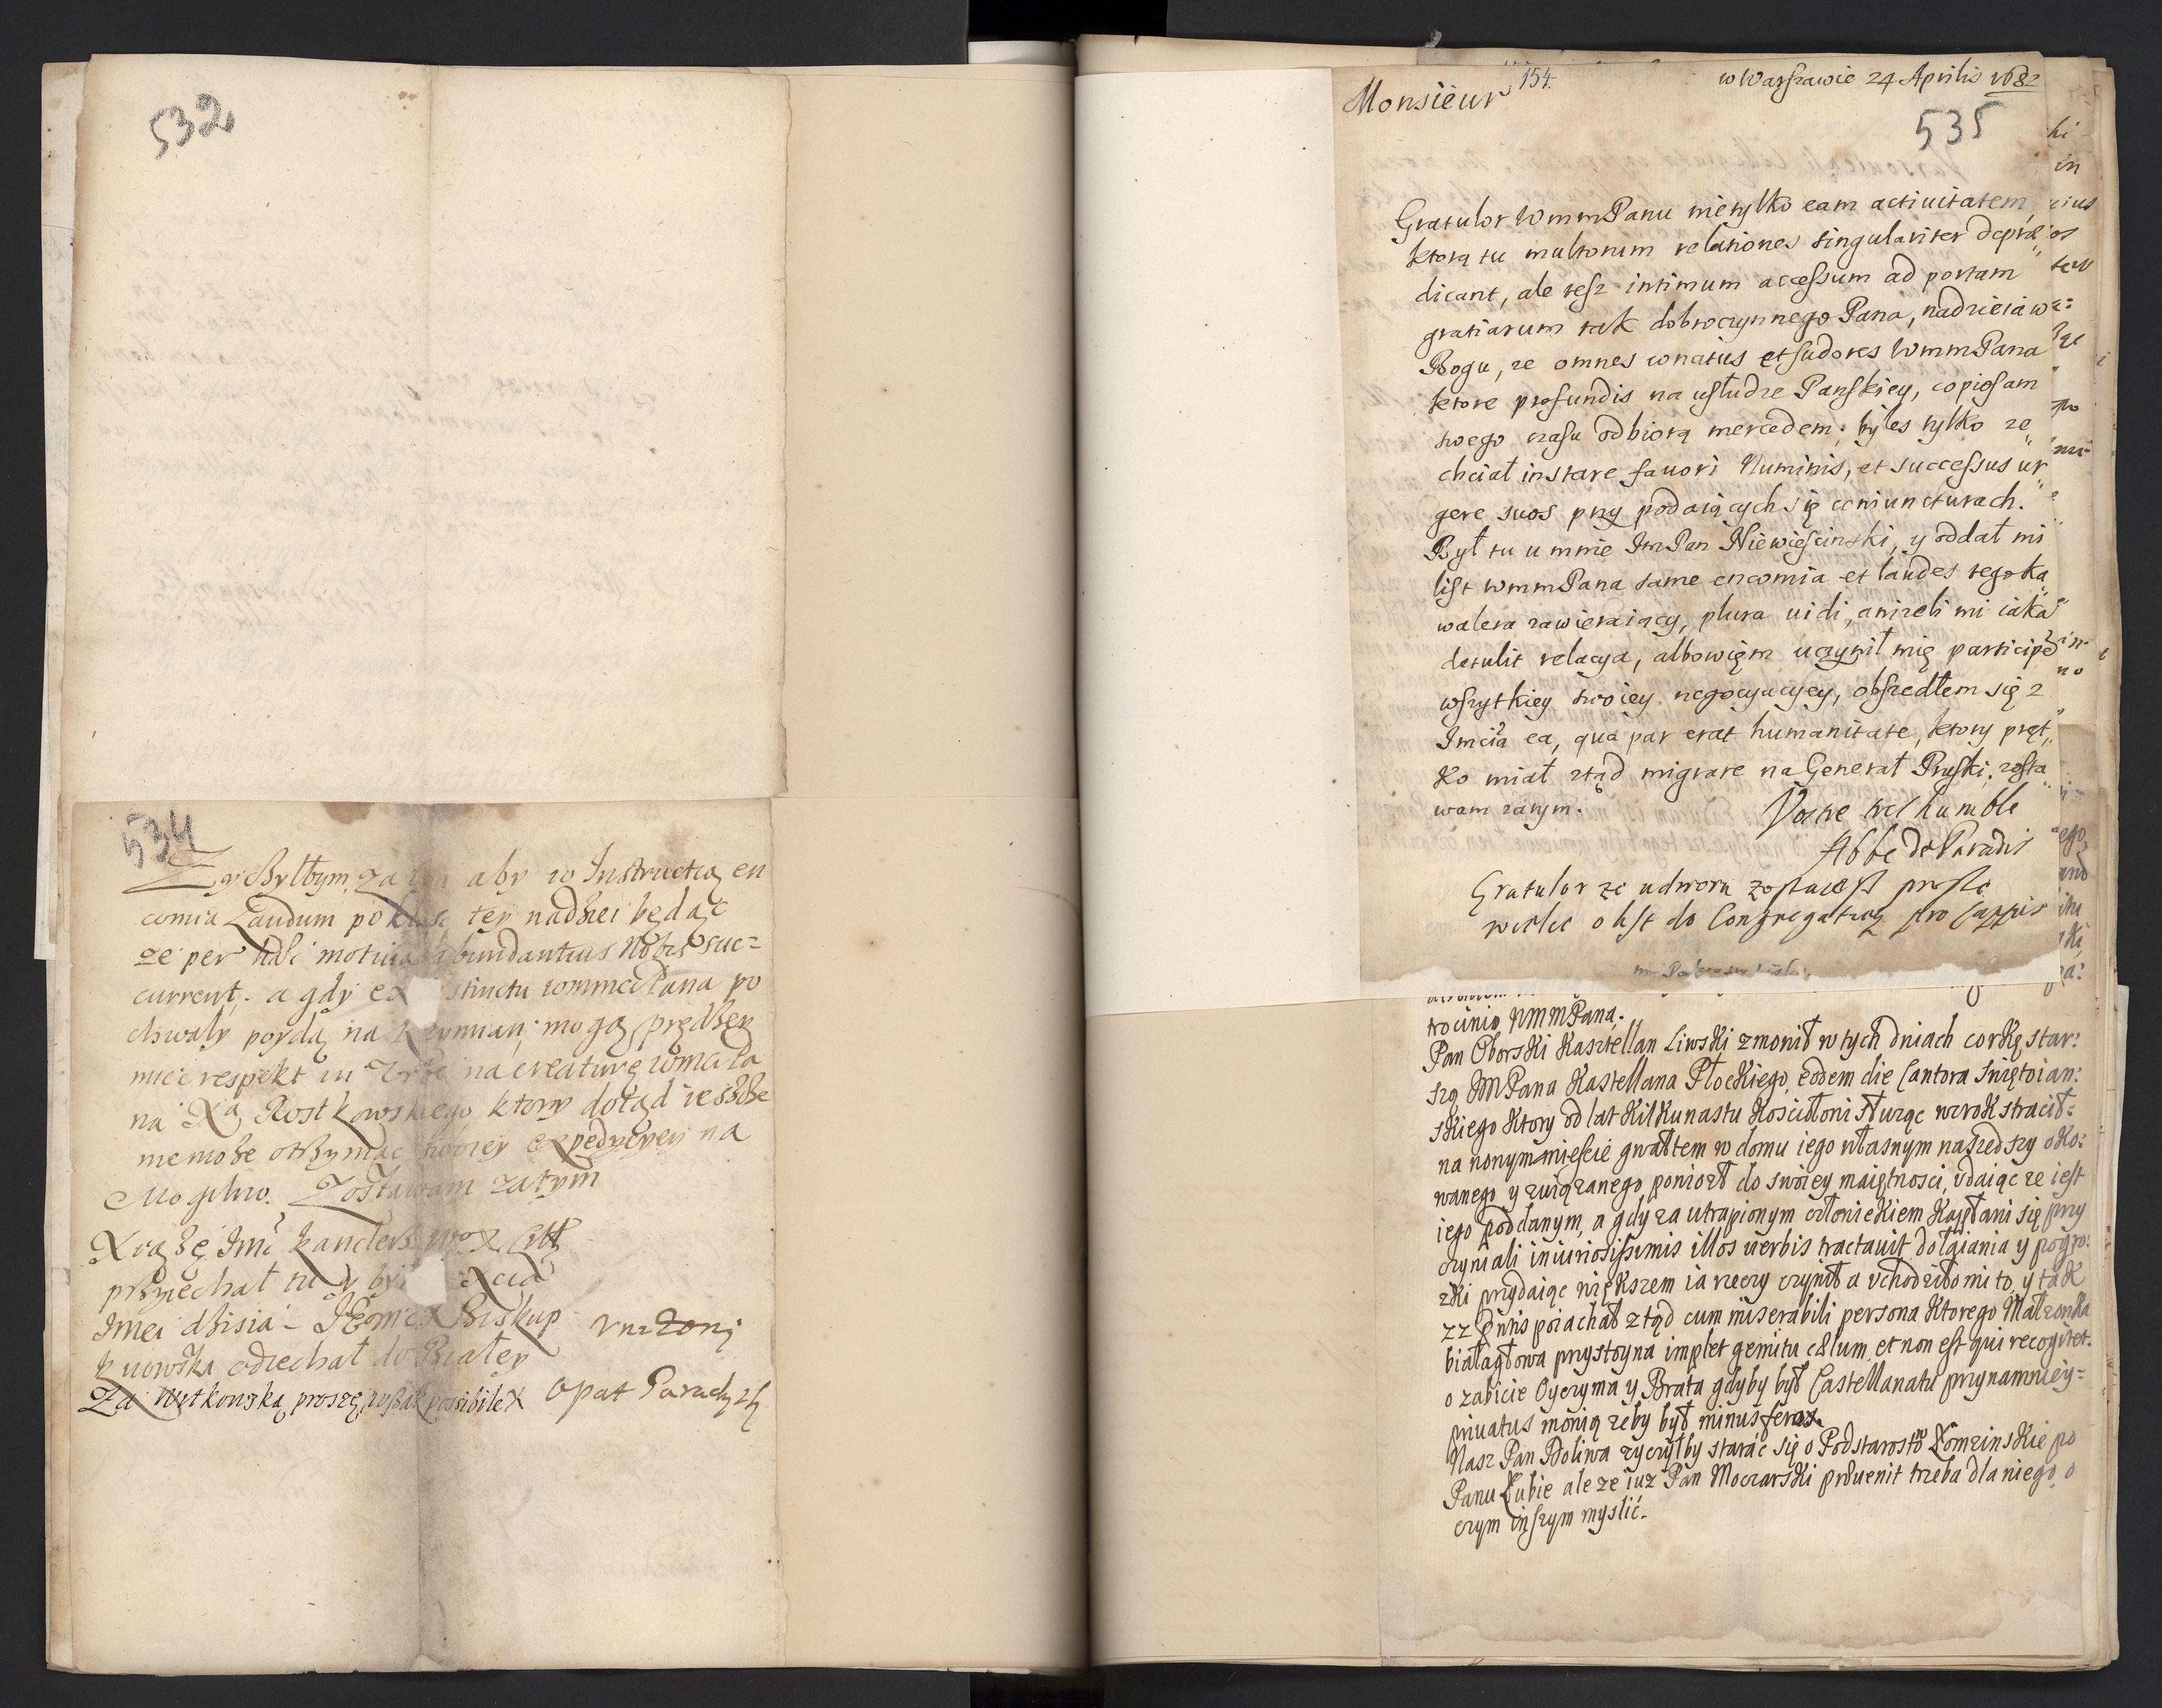 532
534
Życzyłbym za tym aby w Instructią en
comia Laudum po klasc tey nadziei będąc
ze per tali motiua abundantius Nobis suc=
current. a gdy ex instinctu wmmciPana po
chwały poydą na Rzymian, mogą prędzey
miec respekt in Urbe na creaturę wmciPa
na Xa Rostkowskiego, ktory dotąd ieszcze
nie moze otrzymac swoiey expedycyey na
Mogilno. Zostawam zatym
Xiąze Imc kanclerz wo X Litt
przyiechał tu y był Xcia
Imci dzisia JEomc X Biskup
kuowska odiechał do Białey
unizony
Za Nutkowską proszę, possibile
Opat Paradyzki
Monsieur
154.
w Warszawie 24 Aprilis 1682
535
Gratulor WmmPanu nietylko eam actiuitatem,
ktorą tu multorum relationes singulariter deprae„
dicant, ale tesz intimum accessum ad portam
gratiarum tak dobroczynnego Pana, nadzieia w
Bogu, ze omnes conatus et sudores WmmPana
ktore profundis na usłudze Panskiey, copiosam
swego czasu odbiorą mercedem; byles tylko ze„
chciał instare fauori Numinis, et successus ur„
gere suos przy podaiących się coniuncturach.
Był tu u mnie ImPan Niewiescinski, y oddał mi
list wmmPana same encomia et laudes tego ka„
walera zawieraiący, plura uidi, anizeli mi iaka
detulit relacya, albowięm uczynił mię participe
wszytkiey swoiey negocyacyey, obszedłem się z
Imcią ea, qua par erat humanitate, ktory pręt„
ko miał ztąd migrare na Generał Pruski. zosta„
wam zatym.
Vostre tres humble
Abbe de Paradis
Gratulor ze u dworu zostaiesz prosze
wiesc o list do Congregatią pro Cappis
trocinio WMMPana.
Pan Oborski Kasztellan Liwski zmowił w tych dniach corkę star:
szą JMPana Kastellana Płockiego, eodem die Cantora Swiętoian:
skiego ktory od lat kilkunastu kosciołowi służąc wzrok stracił:
na nowym miescie gwałtem w domu iego własnym naszedszy oko:
wanego y związanego powiozł do swoiey maiętnosci, udaiąc ze iest
iego poddanym, a gdy za utrapionym człowiekiem Kapłani się przy
czyniali iniuriosissimis illos uerbis tractauit dołaiania y pogro:
zki przydaiąc większem ia rzeczy czynił a uchodziło mi to, y tak
22 pntis poiachał ztąd cum miserabili persona ktorego Małzonka
białagłowa przystoyna implet gemitu caelum, et non est qui recogitet.
o zabicie Oyczyma y Brata gdyby był Castellanatu przynamniey=
priuatus mowią zeby był minus ferox.
Nasz Pan Doliwa zyczyłby starac się o Podstarostwo Łomzinskie po
Panu Łubie ale ze iuz Pan Moczarski praeuenit trzeba dla niego o
czym inszym myslić.